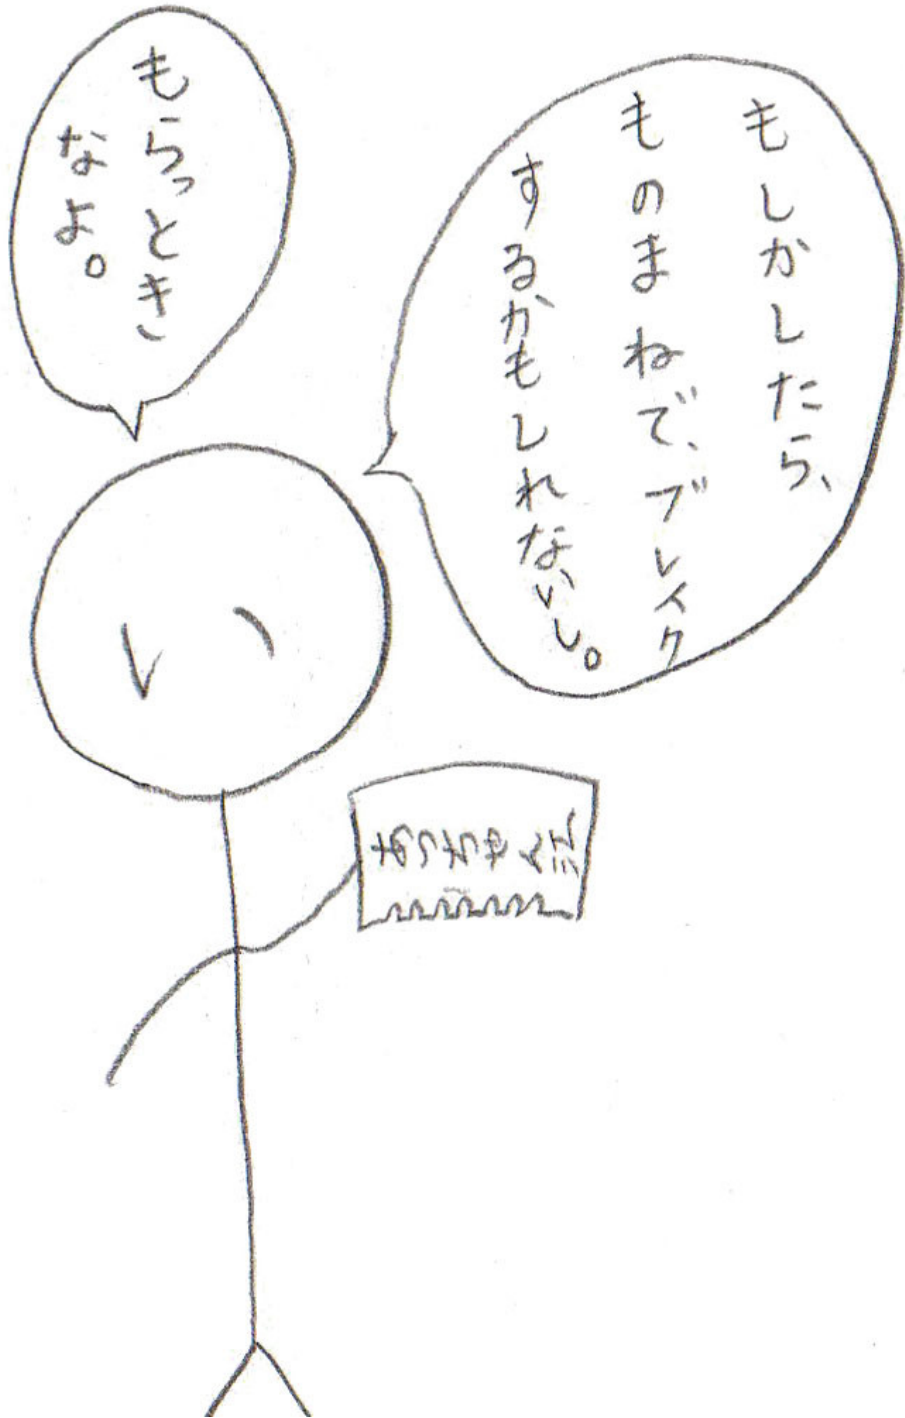 もしかしたら、
ものまねで、ブレイク
するかもしれないし。
もらっとき
なよ。
あっちゃん江